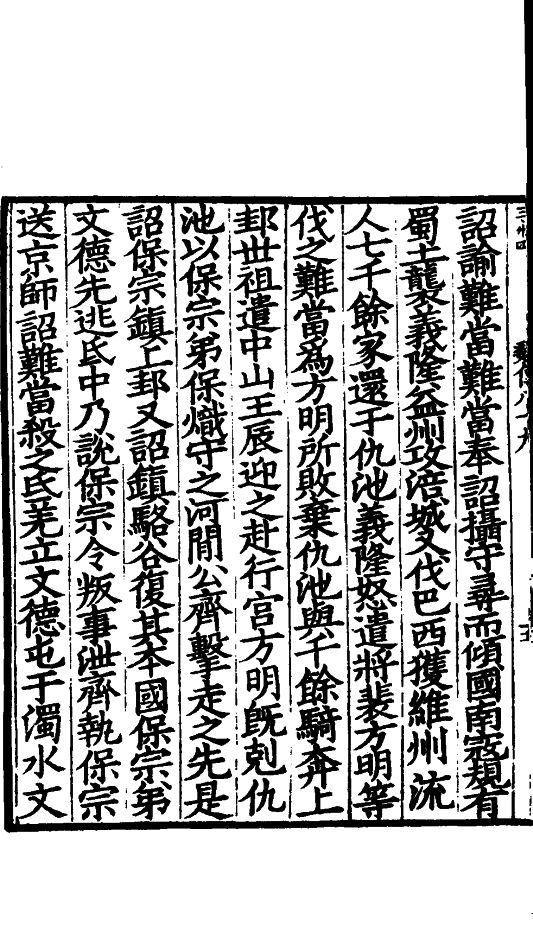 詔諭難當難當奉詔攝守尋而傾國南寇規有
蜀土襲義隆益州攻涪城又伐巴西獲維州流
人七千餘家還于仇池義隆怒遣將裴方明等
伐之難當爲方明所敗棄仇池與千餘騎奔上
邽世祖遣中山王辰迎之赴行宫方明旣剋仇
池以保宗弟保熾守之河間公齊擊走之先是
詔保宗鎮上邽又詔鎮駱谷復其本國保宗弟
文德先逃氐中乃說保宗令叛事泄齊執保宗
送京師詔難當殺之氐羌立文德屯于濁水文